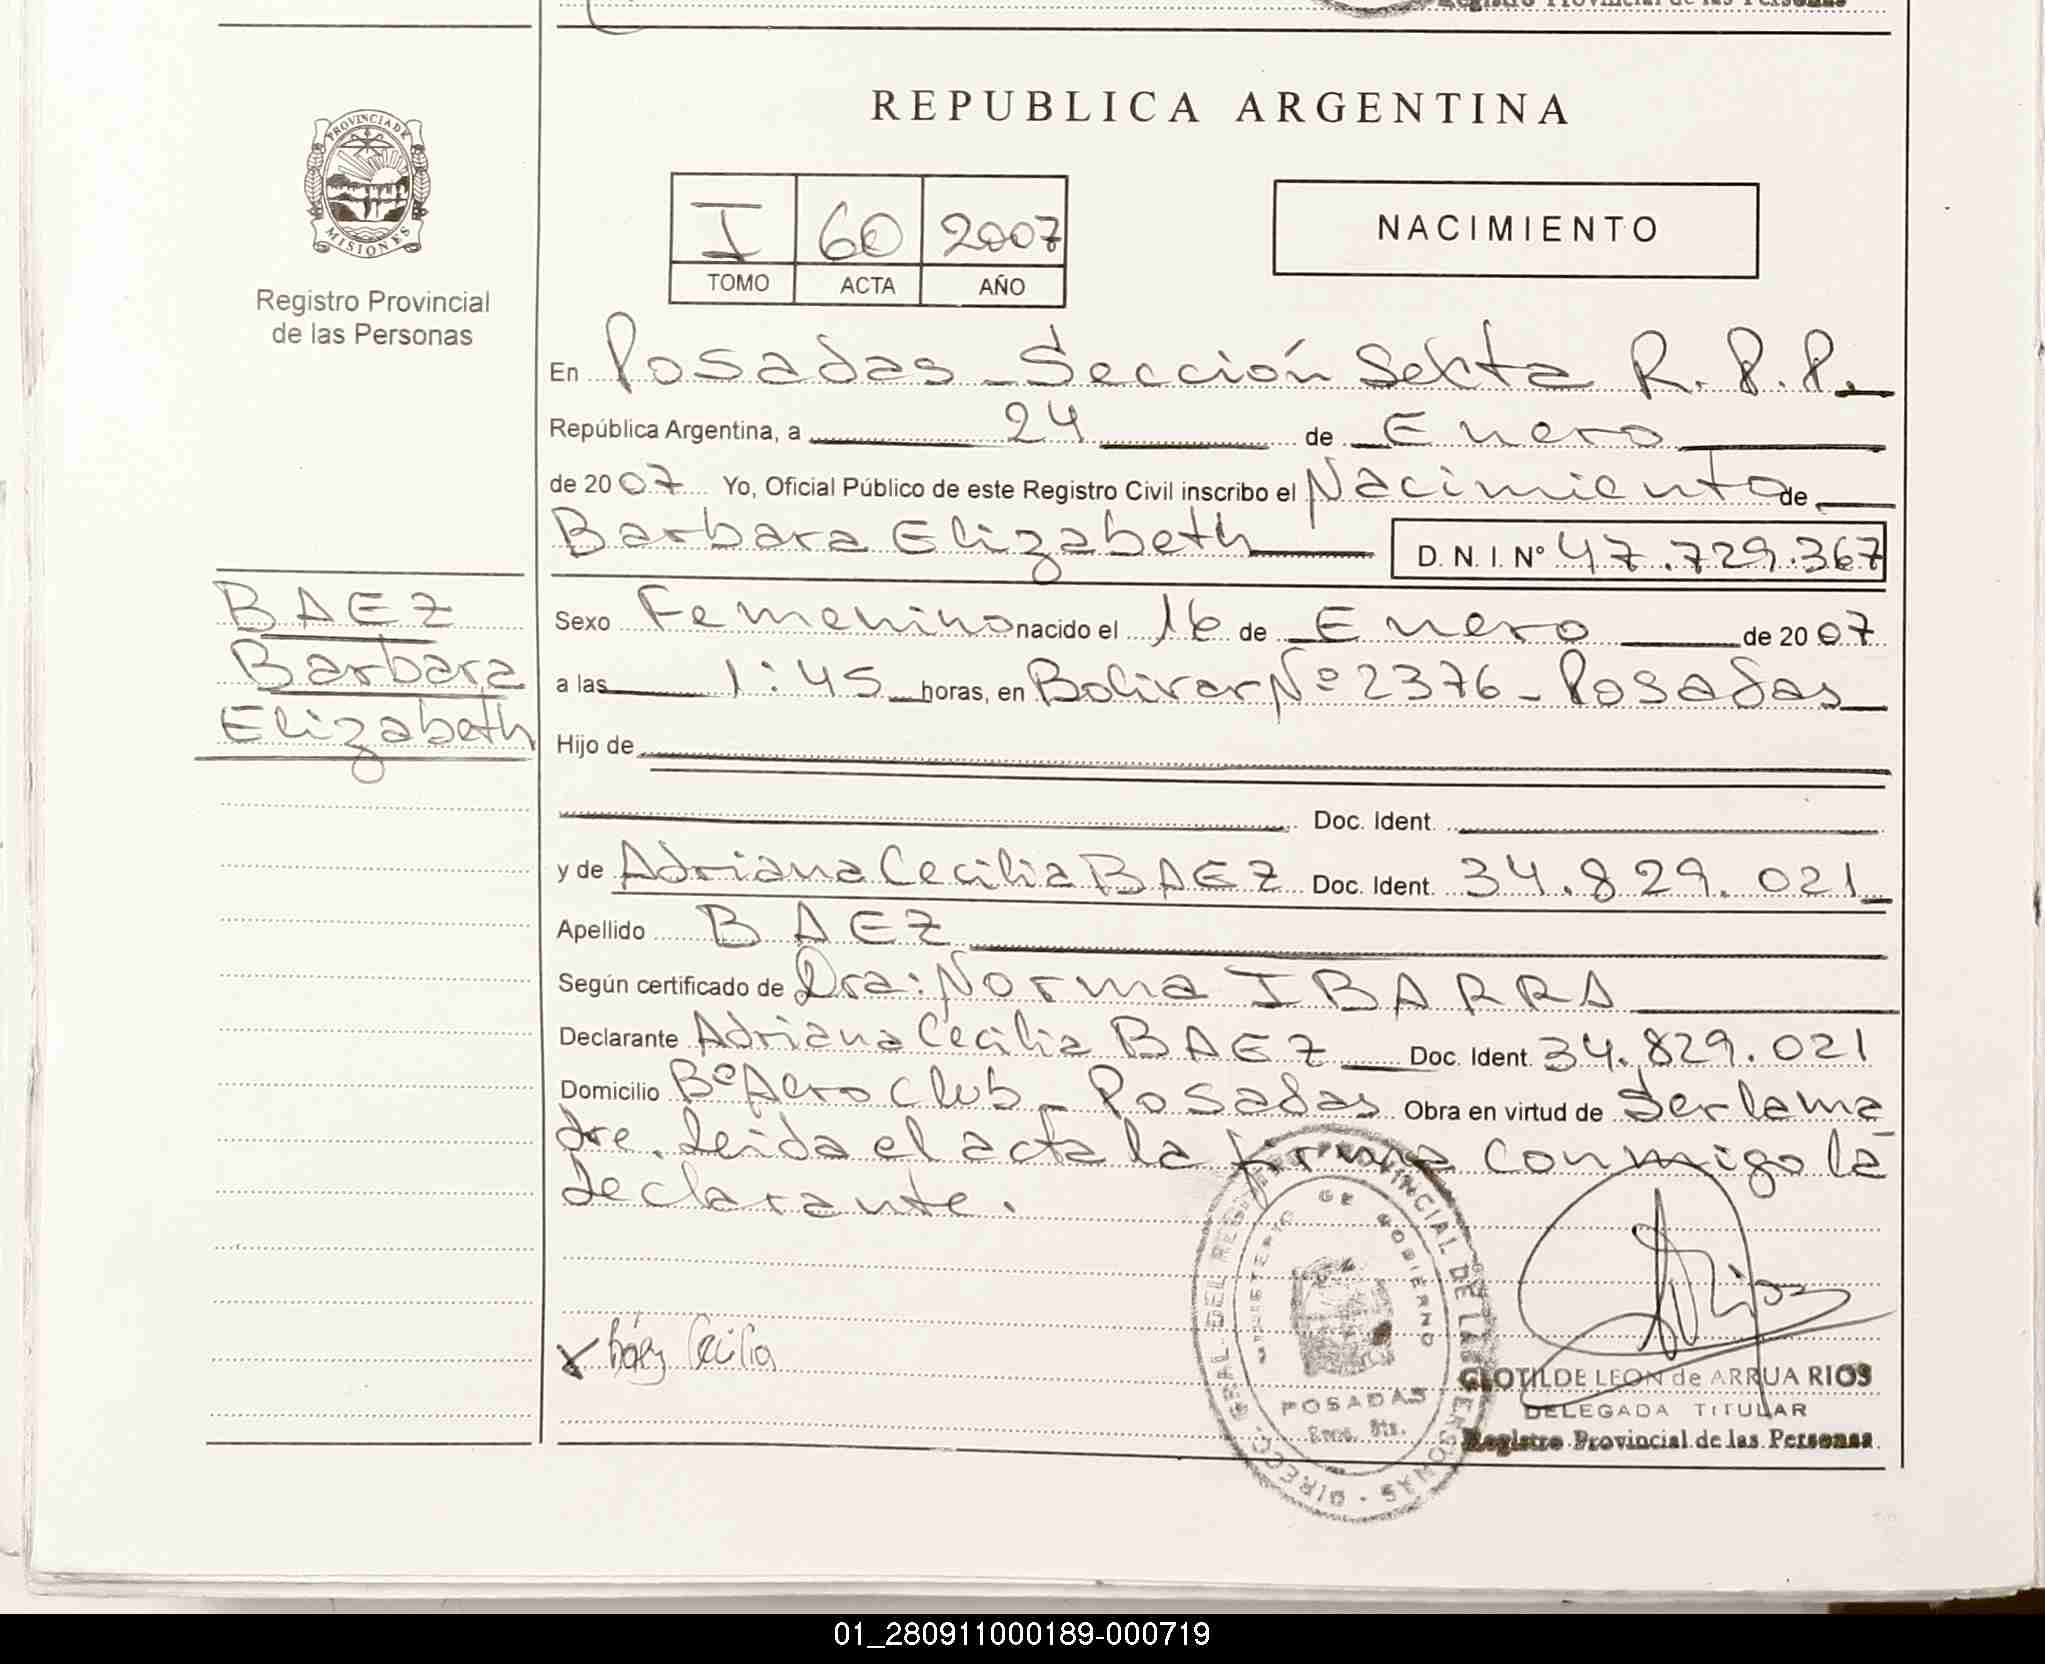 Registro Provincial de las Personas
REPUBLICA ARGENTINA
PROVINCIA DE
MISIONES
Registro Provincial
de las Personas
I 60 2007
TOMO ACTA AÑO
NACIMIENTO
En Posadas - Sección Sexta R.P.P.
República Argentina, a 24 de Enero
de 2007 Yo, Oficial Público de este Registro Civil inscribo el Nacimiento de
Barbara Elizabeth D. N. I. Nº 47.729.367
BAEZ
Barbara
Elizabeth
Sexo Femenino nacido el 16 de Enero de 2007
a las 1:45 horas, en Bolivar Nº 2376 - Posadas
Hijo de
Doc. Ident.
y de Adriana Cecilia BAEZ Doc. Ident. 34.829.021
Apellido BAEZ
Según certificado de Dra: Norma IBARRA
Declarante Adriana Cecilia BAEZ Doc. Ident. 34.829.021
Domicilio Bº Aero Club - Posadas Obra en virtud de Ser la ma
dre. Leida el acta la firma conmigo la
declarante.
Báez Cecilia
DIRECC. GRAL. DEL REGISTRO PROVINCIAL DE LAS PERSONAS
MINISTERIO DE GOBIERNO
POSADAS
CLOTILDE LEON de ARRUA RIOS
DELEGADA TITULAR
Registro Provincial de las Personas
01_280911000189-000719